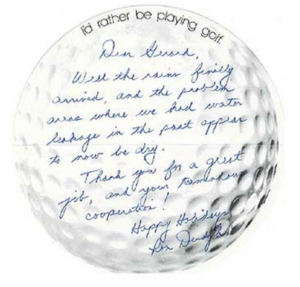 I'd rather be playing golf.
Dear Guard,
Well the rains finally
arrived, and the problem
areas where we had water
leakage in the past appear
to now be dry.
Thank you for a great
job, and your tremendous
cooperation!
Happy Holidays